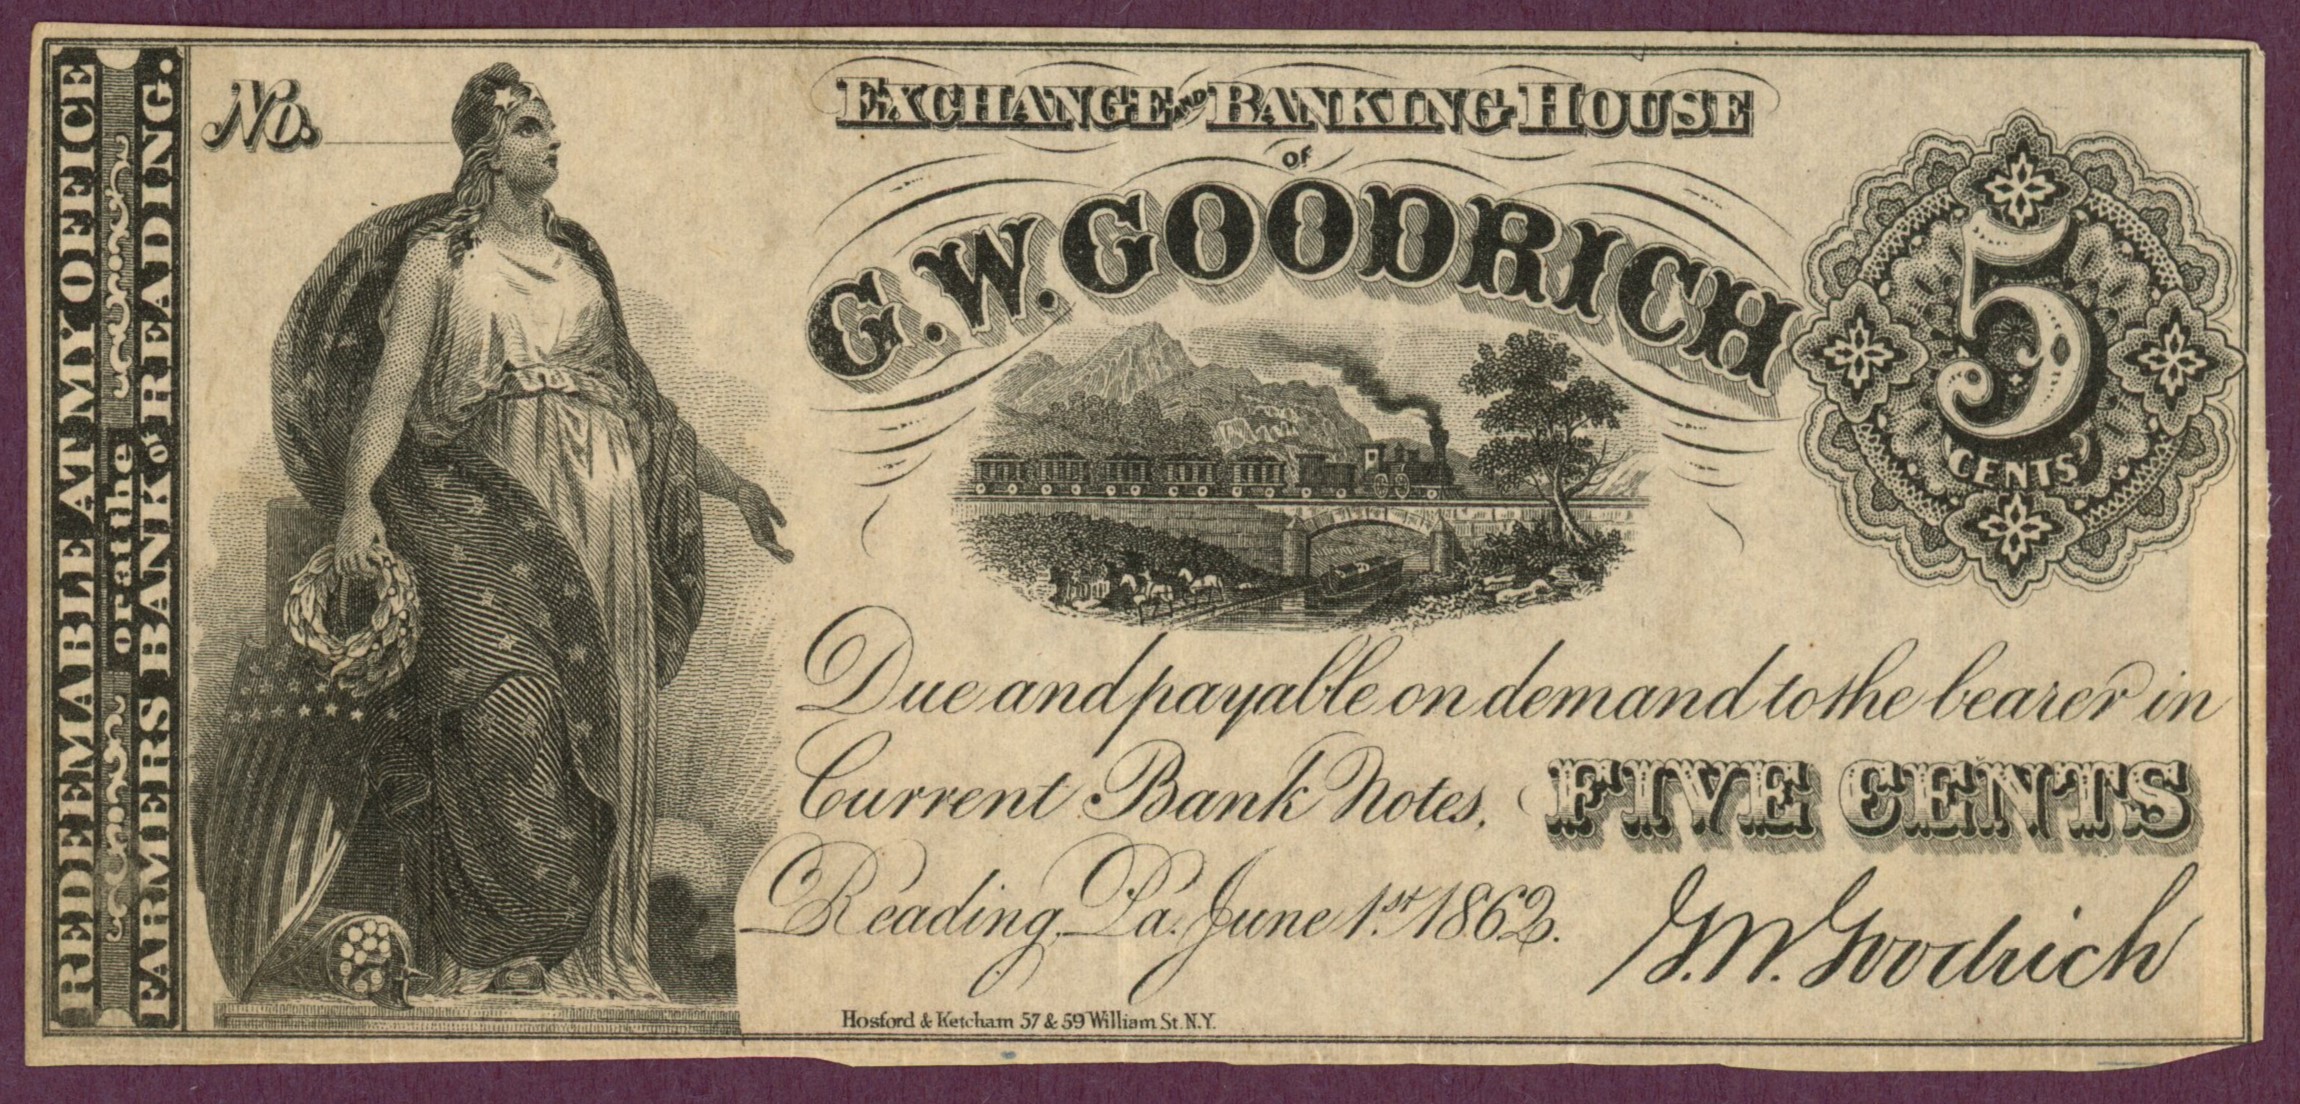 REDEEMABLE AT MY OFFICE
or at the
FARMERS BANK OF READING.
No.
EXCHANGE AND BANKING HOUSE
OF
G.W. GOODRICH
5
CENTS
Due and payable on demand to the bearer in
Current Bank Notes, FIVE CENTS
Reading, Pa. June 1st 1862.
G.W. Goodrich
Hosford & Ketcham 57 & 59 William St. N.Y.